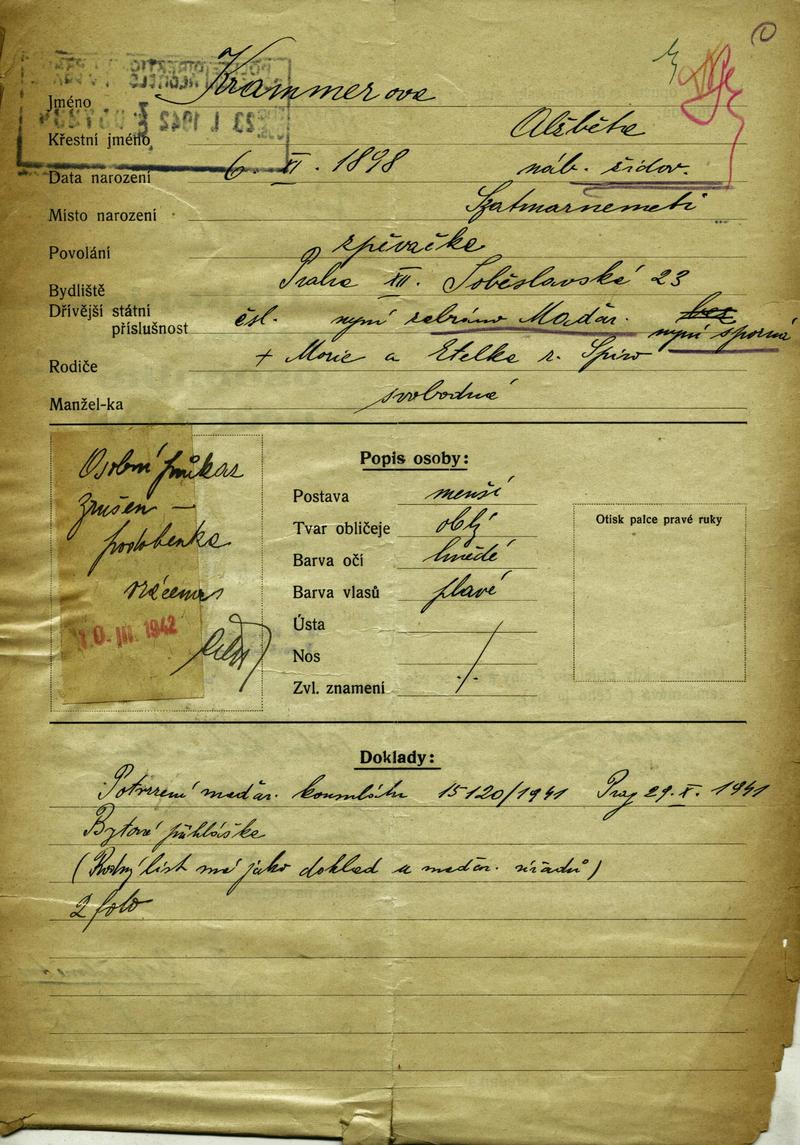 Jméno Krammerova
Křestní jméno Alžběta
Data narození 6. XI. 1898 náb. židov.
Místo narození Szatmarnemeti
Povolání zpěvačka
Bydliště Praha XII. Soběslavská 23
Dřívější státní čsl. nyní zabráno Maďar. bez
příslušnost nyní sporná
Rodiče + Moric a Etelka r. Spiro
Manžel-ka svobodná
Osobní průkaz
zrušen —
podobenka
vrácena
10. III. 1942
Popis osoby:
Postava menší
Tvar obličeje oblý
Barva očí hnědé
Barva vlasů plavé
Ústa
Nos
Zvl. znamení
Otisk palce pravé ruky
Doklady:
Potvrzení maďar. konsulátu 15120/1941 Prag 29. X. 1941
Bytová přihláška
(Rodný list má jako doklad u maďar. úřadů)
2 foto